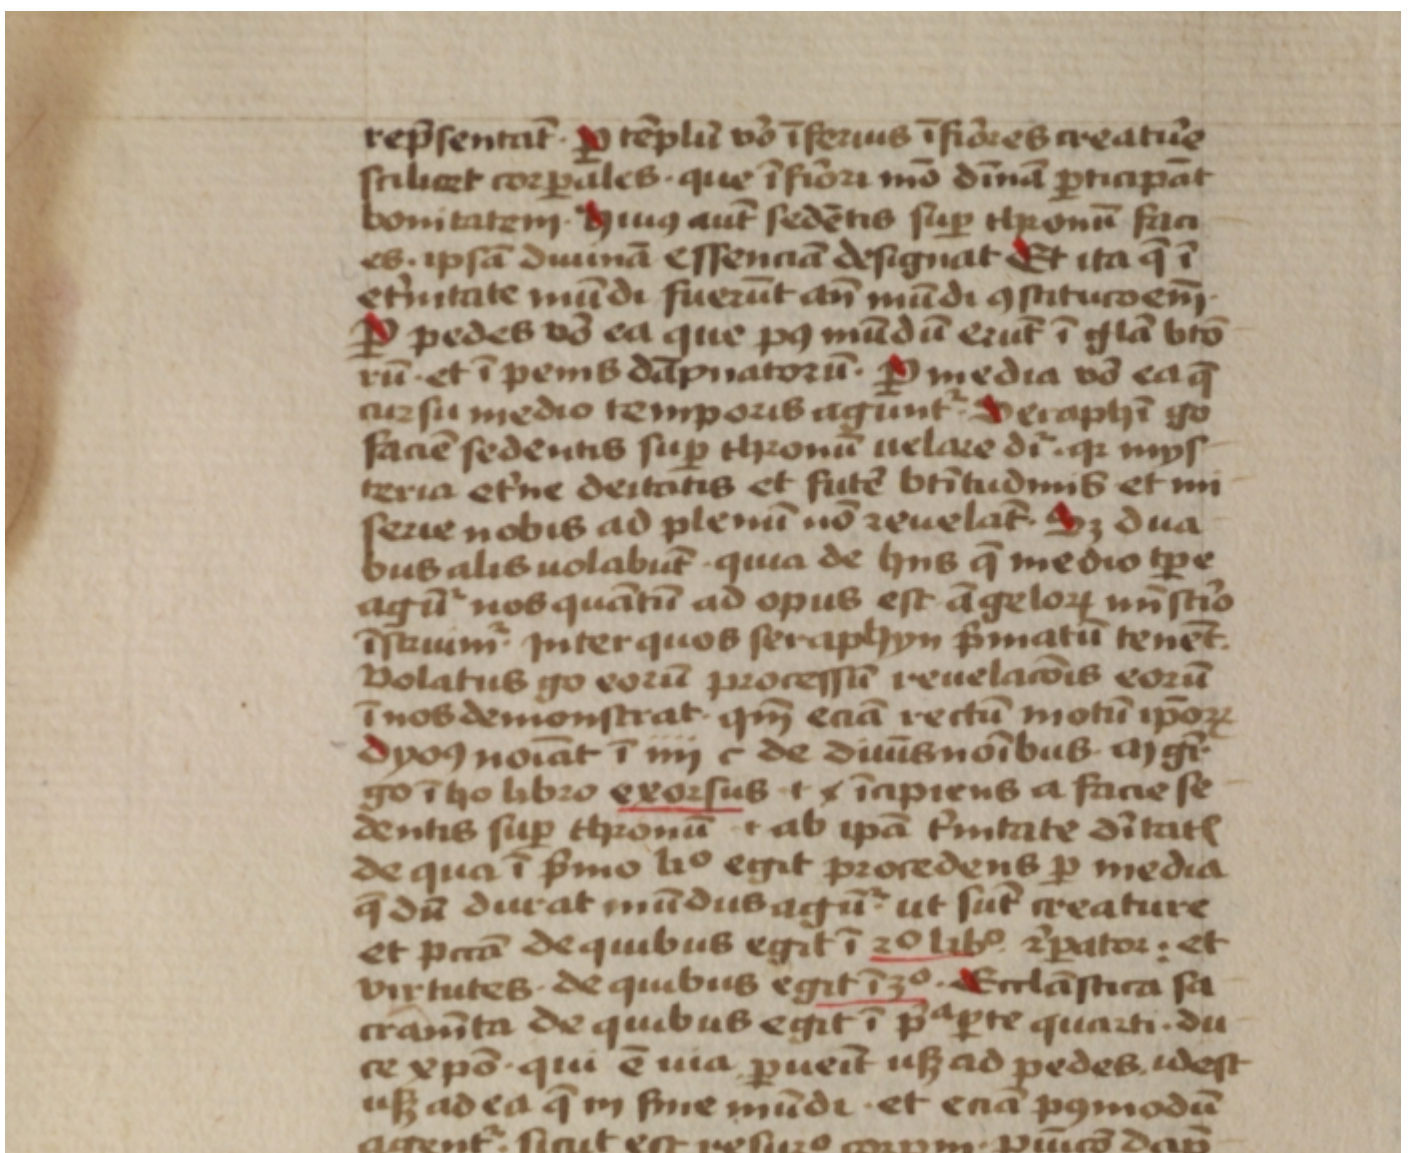 rep̄sentat̄. P̱ tēplū v̄o īferius īfiōres creatūe
scilicet corp̱ales. que īfiōri mō dīnā p̱ticipāt
bonitatem. huiꝯ aut̄ sedētis sup̱ thronū faci
es. ipsā diuinā essenciā designat Et ita q̄ ī
et̓nitate mūdi fuerūt an̄ mūdi ꝯstitucōem̄.
P̱ pedes v̄o ea que pꝯ mūdū erūt̄ ī gl̄iā btō
rū. et ī penis dāpnatorū. P̱ media v̄o ea q̄
cursu medio temporis agunt᷑. Seraphī go
faciē sedentis sup̱ thronū uelare di᷑. qr mys
teria et̓ne deitatis et fut̓e bt̄itudinis et mi
serie nobis ad plenū nō reuelāt. Sꝫ dua
bus alis uolabūt̄. quia de hijs q̄ medio tp̱e
agū᷑ nos quātū ad opus est āgeloꝝ mīst̓io
īstruim᷑. Inter quos seraphyn p̄matū tenēt.
Volatus go eorū processū reuelacōis eorū
ī nos demonstrat. qm̄ eciā rectū motū ip̄oꝝ
dyoꝯ noīat ī iiij c de diuīs noībus. mgr̄
go ī h̄o libro exorsus incipiens a facie se
dentis sup̱ thronū et ab ip̄a t̓nitate dītat̄
de qua ī p̄mo liº egit procedens p̱ media
q̄ dū durat mūdus agū᷑ ut sūt̄ creature
et pccā de quibus egit ī 2º libº. r̄p̱ator: et
virtutes. de quibus egit ī 3º. Eccl̄āstica sa
cram̄ta de quibus egit ī pᵃ p̱te quarti. du
ce xp̄o. qui ē uia p̱ueīt usꝫ ad pedes. idest
usꝫ ad ea q̄ in fine mūdi. et eciā pꝯmodū
agent᷑. sicut est resur̄º corpm.